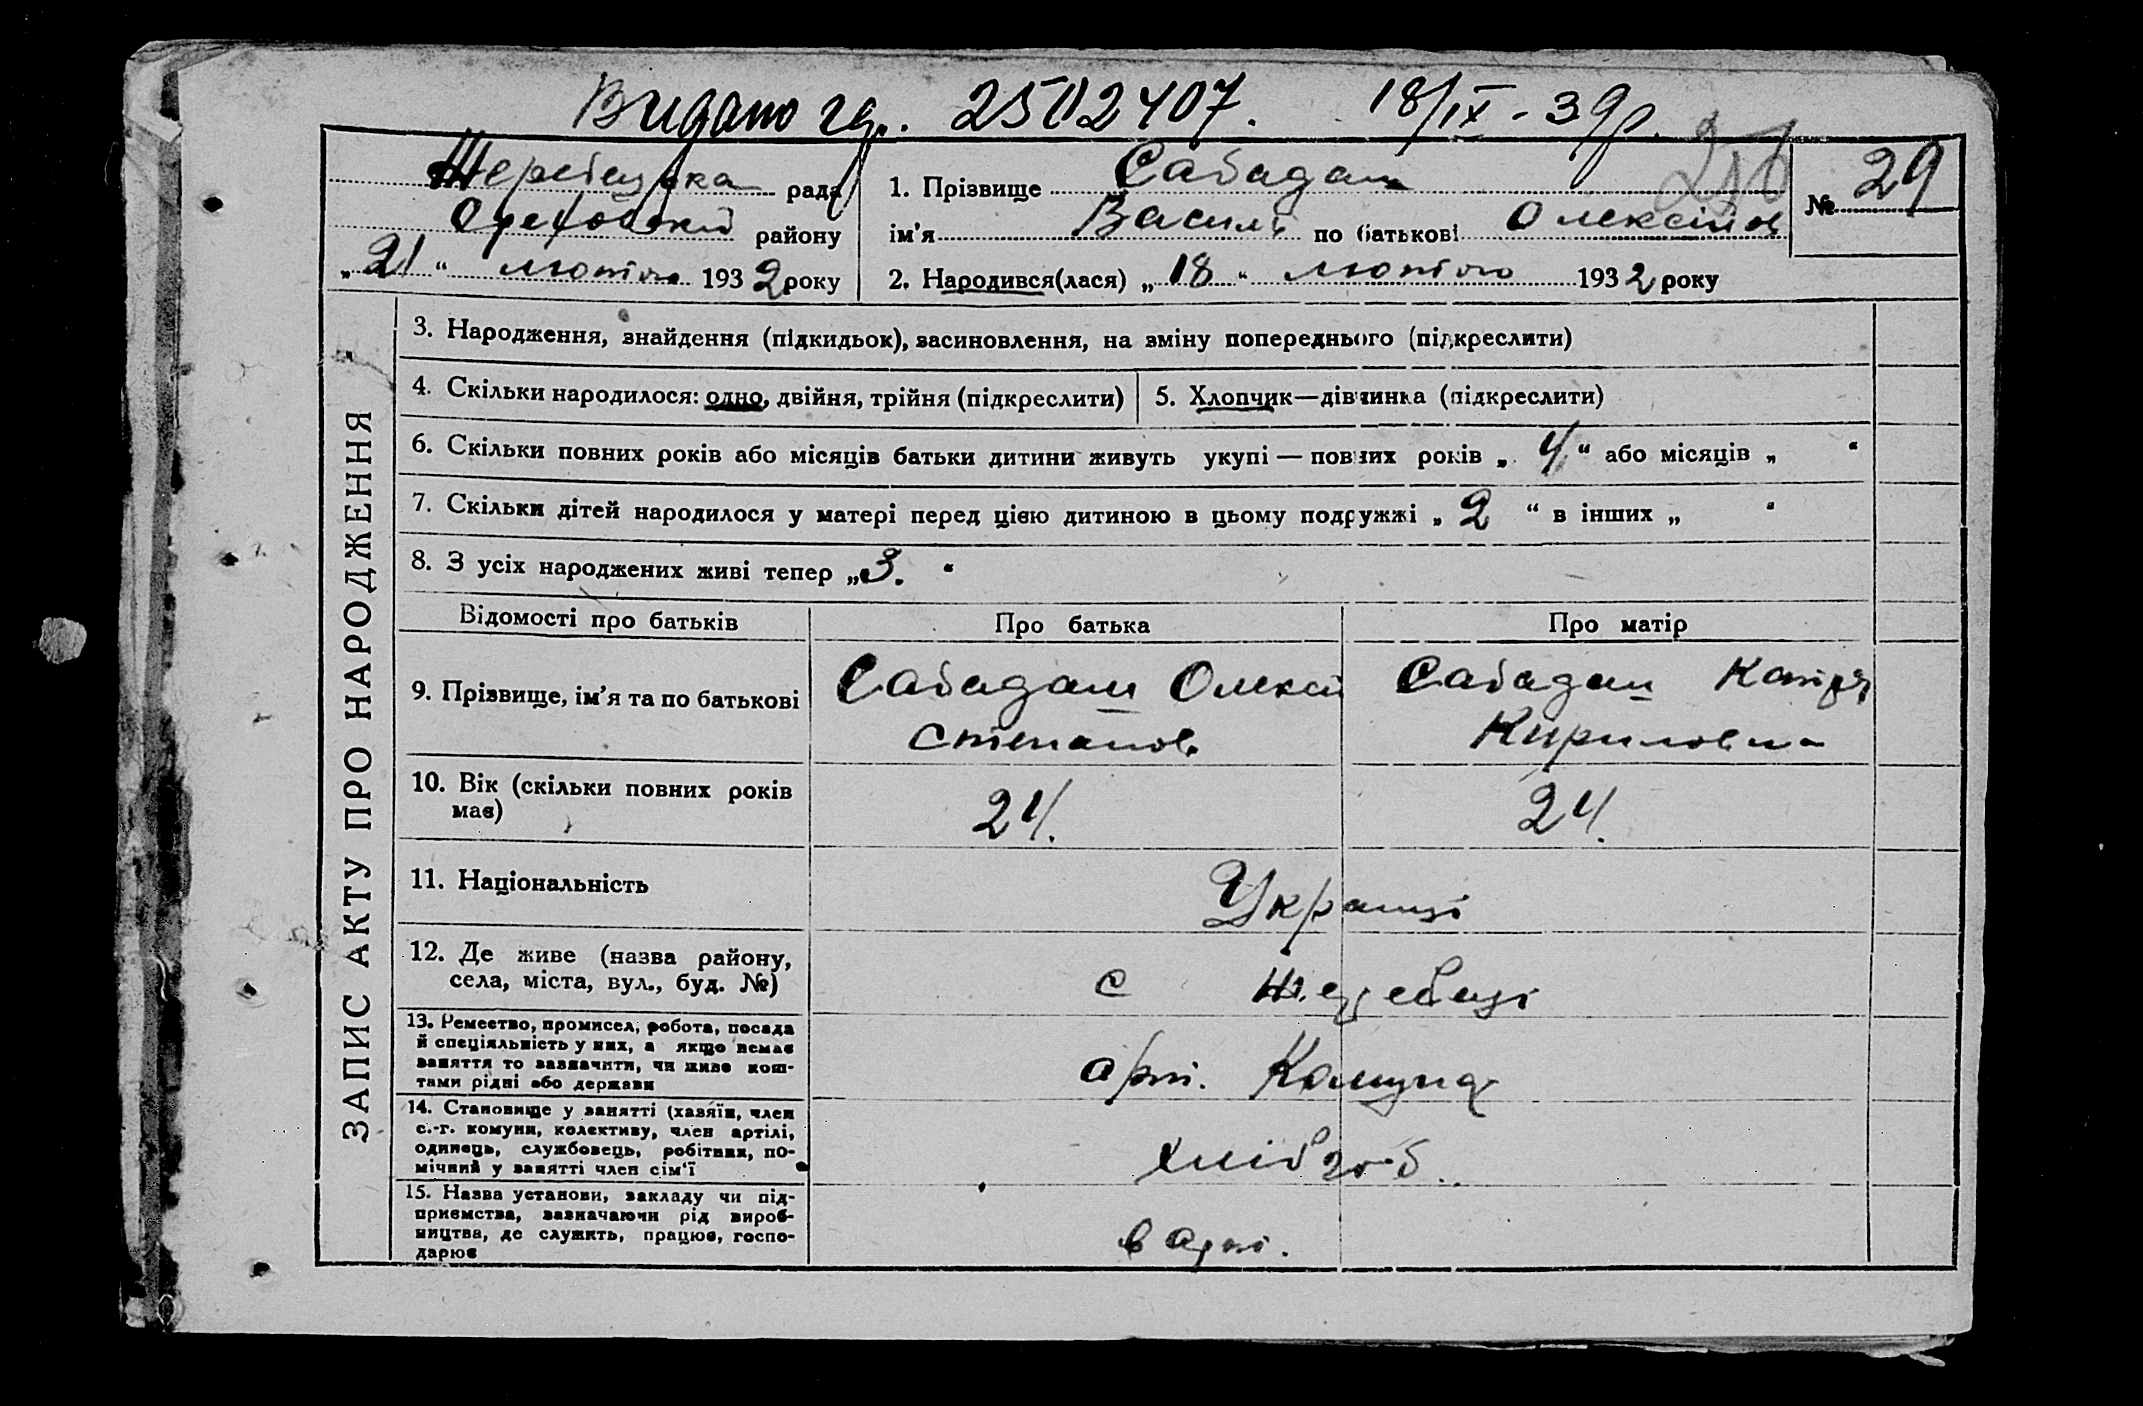 Видано гр. 2502407. 18/IX-39р.
Жеребецька рада
Орехівский району
„21“ лютого 1932 року
1. Прізвище Сабадаш
ім'я Василь по батькові Олексійов
2. Народився(лася) „18“ лютого 1932 року
№ 29
ЗАПИС АКТУ ПРО НАРОДЖЕННЯ
3. Народження, знайдення (підкидьок), засиновлення, на зміну попереднього (підкреслити)
4. Скільки народилося: одно, двійня, трійня (підкреслити)
5. Хлопчик—дівчинка (підкреслити)
6. Скільки повних років або місяців батьки дитини живуть укупі — повних років „4“ або місяців „ “
7. Скільки дітей народилося у матері перед цією дитиною в цьому подружжі „2“ в інших „ “
8. З усіх народжених живі тепер „3.“
Відомості про батьків Про батька Про матір
9. Прізвище, ім'я та по батькові
Сабадаш Олексій
Степанов
Сабадаш Катря
Кириловна
10. Вік (скільки повних років
має)
24.
24.
11. Національність
Українці
12. Де живе (назва району,
села, міста, вул., буд. №)
с Жеребеці
13. Ремество, промисел, робота, посада
й спеціяльність у них, а якщо немає
заняття то зазначити, чи живе кош-
тами рідні або держави
арт. Комунар
14. Становище у занятті (хазяїн, член
с.-г. комуни, колективу, член артілі,
одинець, службовець, робітник, по-
мічний у занятті член сім'ї
хліброб.
15. Назва установи, закладу чи під-
приємства, зазначаючи рід вироб-
ництва, де служить, працює, госпо-
дарює
в арт.